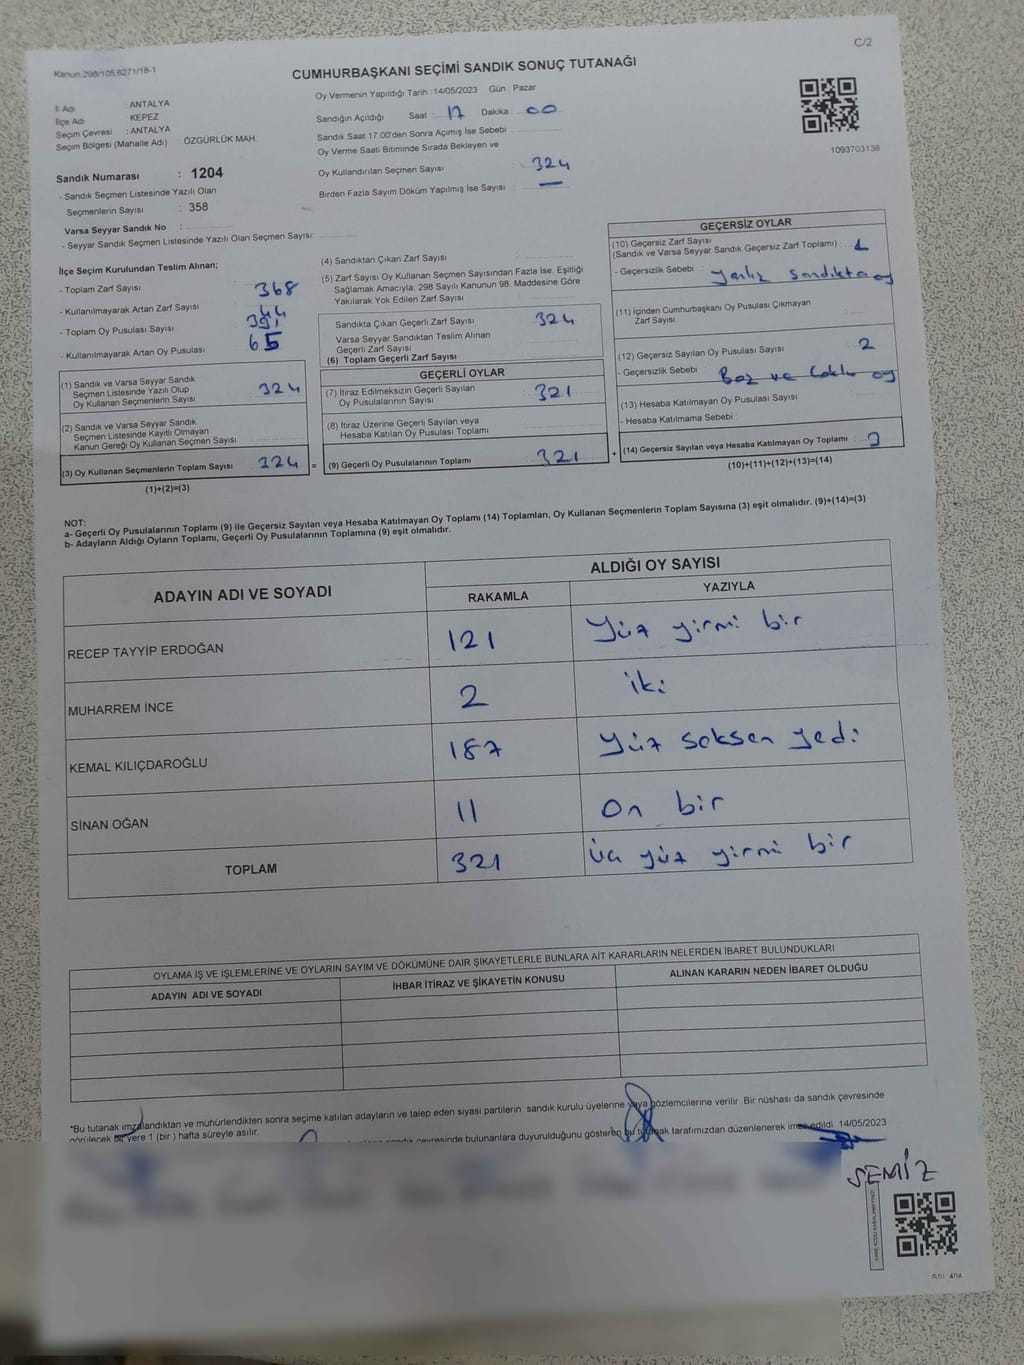 C/2
Kanun:298/105,6271/18-1
CUMHURBAŞKANI SEÇİMİ SANDIK SONUÇ TUTANAĞI
İl Adı : ANTALYA
İlçe Adı KEPEZ
Seçim Çevresi : ANTALYA
Seçim Bölgesi (Mahalle Adı) : ÖZGÜRLÜK MAH.
Oy Vermenin Yapıldığı Tarih : 14/05/2023 Gün : Pazar
Sandığın Açıldığı Saat : 17 Dakika : 00
Sandık Saat 17:00'den Sonra Açımış İse Sebebi
Oy Verme Saati Bitiminde Sırada Bekleyen ve
Oy Kullandırılan Seçmen Sayısı : 324
Birden Fazla Sayım Döküm Yapılmış İse Sayısı : —
1093703136
Sandık Numarası : 1204
- Sandık Seçmen Listesinde Yazılı Olan
Seçmenlerin Sayısı : 358
Varsa Seyyar Sandık No :
- Seyyar Sandık Seçmen Listesinde Yazılı Olan Seçmen Sayısı:
İlçe Seçim Kurulundan Teslim Alınan;
- Toplam Zarf Sayısı 368
- Kullanılmayarak Artan Zarf Sayısı 44
- Toplam Oy Pusulası Sayısı
- Kullanılmayarak Artan Oy Pusulası 65
(1) Sandık ve Varsa Seyyar Sandık
Seçmen Listesinde Yazılı Olup
Oy Kullanan Seçmenlerin Sayısı : 324
(2) Sandık ve Varsa Seyyar Sandık
Seçmen Listesinde Kayıtlı Olmayan
Kanun Gereği Oy Kullanan Seçmen Sayısı
(3) Oy Kullanan Seçmenlerin Toplam Sayısı : 324 =
(1)+(2)=(3)
(4) Sandıktan Çıkan Zarf Sayısı
(5) Zarf Sayısı Oy Kullanan Seçmen Sayısından Fazla İse, Eşitliği
Sağlamak Amacıyla, 298 Sayılı Kanunun 98. Maddesine Göre
Yakılarak Yok Edilen Zarf Sayısı
Sandıkta Çıkan Geçerli Zarf Sayısı : 324
Varsa Seyyar Sandıktan Teslim Alınan
Geçerli Zarf Sayısı
(6) Toplam Geçerli Zarf Sayısı
GEÇERLİ OYLAR
(7) İtiraz Edilmeksizin Geçerli Sayılan
Oy Pusulalarının Sayısı : 321
(8) İtiraz Üzerine Geçerli Sayılan veya
Hesaba Katılan Oy Pusulası Toplamı
(9) Geçerli Oy Pusulalarının Toplamı : 321 +
GEÇERSİZ OYLAR
(10) Geçersiz Zarf Sayısı
(Sandık ve Varsa Seyyar Sandık Geçersiz Zarf Toplamı) : 1
- Geçersizlik Sebebi : sandıkta oy
(11) İçinden Cumhurbaşkanı Oy Pusulası Çıkmayan
Zarf Sayısı
(12) Geçersiz Sayılan Oy Pusulası Sayısı : 2
- Geçersizlik Sebebi : Boz ve oy
(13) Hesaba Katılmayan Oy Pusulası Sayısı
- Hesaba Katılmama Sebebi :
(14) Geçersiz Sayılan veya Hesaba Katılmayan Oy Toplamı : 3
(10)+(11)+(12)+(13)=(14)
NOT:
a- Geçerli Oy Pusulalarının Toplamı (9) ile Geçersiz Sayılan veya Hesaba Katılmayan Oy Toplamı (14) Toplamları, Oy Kullanan Seçmenlerin Toplam Sayısına (3) eşit olmalıdır. (9)+(14)=(3)
b- Adayların Aldığı Oyların Toplamı, Geçerli Oy Pusulalarının Toplamına (9) eşit olmalıdır.
ADAYIN ADI VE SOYADI ALDIĞI OY SAYISI
RAKAMLA YAZIYLA
RECEP TAYYİP ERDOĞAN 121 Yüz yirmi bir
MUHARREM İNCE 2 iki
KEMAL KILIÇDAROĞLU 187 Yüz seksen yedi
SİNAN OĞAN 11 On bir
TOPLAM 321 Üç yüz yirmi bir
OYLAMA İŞ VE İŞLEMLERİNE VE OYLARIN SAYIM VE DÖKÜMÜNE DAİR ŞİKAYETLERLE BUNLARA AİT KARARLARIN NELERDEN İBARET BULUNDUKLARI
ADAYIN ADI VE SOYADI İHBAR İTİRAZ VE ŞİKAYETİN KONUSU ALINAN KARARIN NEDEN İBARET OLDUĞU
*Bu tutanak imzalandıktan ve mühürlendikten sonra seçime katılan adayların ve talep eden siyasi partilerin sandık kurulu üyelerine veya gözlemcilerine verilir. Bir nüshası da sandık çevresinde
görülecek bir yere 1 (bir ) hafta süreyle asılır.
sandık çevresinde bulunanlara duyurulduğunu gösteren bu tutanak tarafımızdan düzenlenerek imza edildi. 14/05/2023
SEMİZ